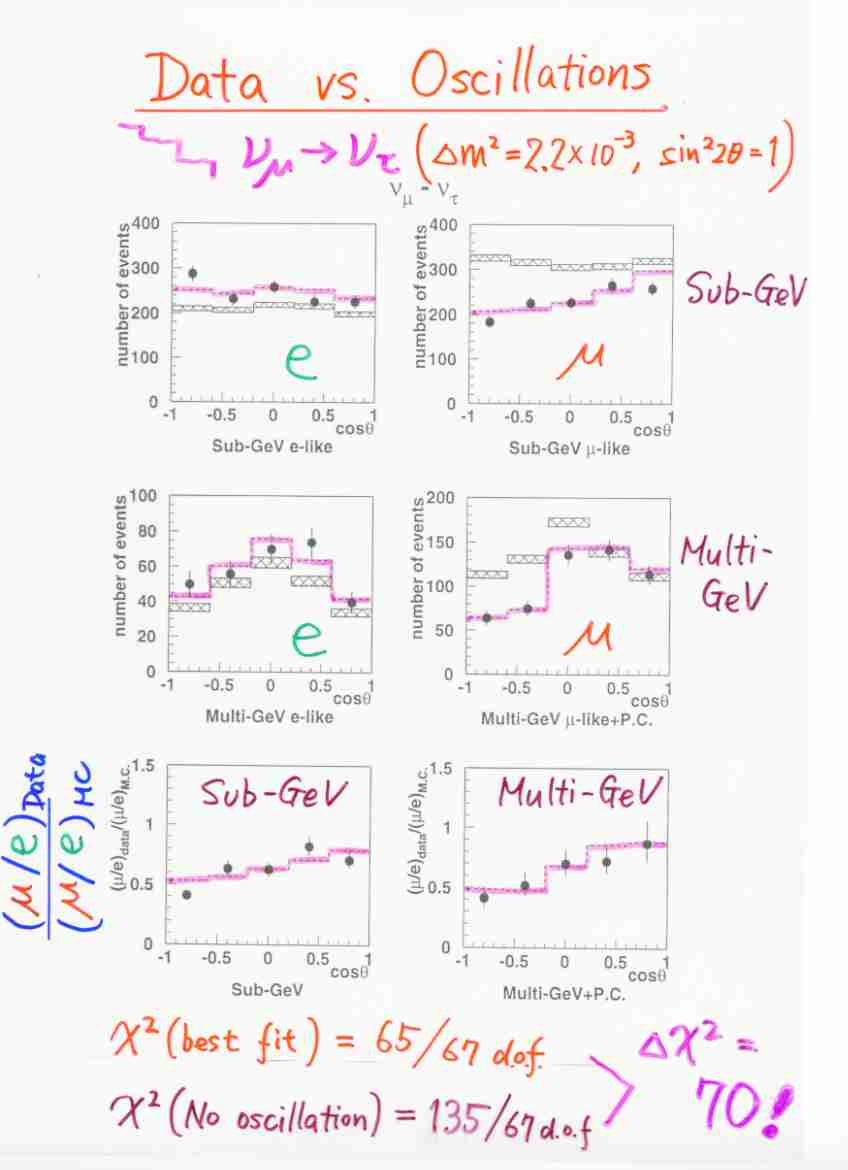 Data vs. Oscillations
νμ → ντ (Δm²=2.2×10⁻³, sin²2θ=1)
νμ - ντ
number of events
400
300
200
100
0
-1 -0.5 0 0.5 1
cosθ
Sub-GeV e-like
e
number of events
400
300
200
100
0
-1 -0.5 0 0.5 1
cosθ
Sub-GeV μ-like
μ
Sub-GeV
number of events
100
80
60
40
20
0
-1 -0.5 0 0.5 1
cosθ
Multi-GeV e-like
e
number of events
200
150
100
50
0
-1 -0.5 0 0.5 1
cosθ
Multi-GeV μ-like+P.C.
μ
Multi-
GeV
(μ/e)Data
(μ/e)MC
(μ/e)data/(μ/e)M.C.
1.5
1
0.5
0
-1 -0.5 0 0.5 1
cosθ
Sub-GeV
Sub-GeV
(μ/e)data/(μ/e)M.C.
1.5
1
0.5
0
-1 -0.5 0 0.5 1
cosθ
Multi-GeV+P.C.
Multi-GeV
χ² (best fit) = 65/67 d.o.f.
χ² (No oscillation) = 135/67 d.o.f
Δχ² =
70!